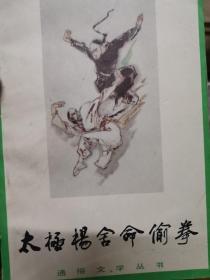 太極楊舍命偷拳
通俗文学丛书